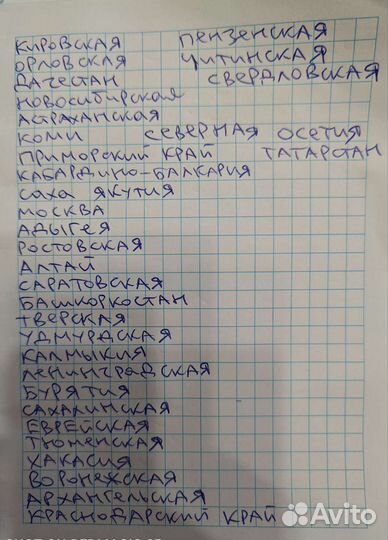 КИРОВСКАЯ ПЕНЗЕНСКАЯ
ОРЛОВСКАЯ ЧИТИНСКАЯ
ДАЧЕСТАН СВЕРДЛОВСКАЯ
НОВОСИБИРСКАЯ
АСТРАХАНСКАЯ
КОМИ СЕВЕРНАЯ ОСЕТИЯ
ПРИМОРСКИЙ КРАЙ ТАТАРСТАН
КАБАРДИНО-БАЛКАРИЯ
САХА ЯКУТИЯ
МОСКВА
АДЫГЕЯ
РОСТОВСКАЯ
АЛТАЙ
САРАТОВСКАЯ
БАШКОРКОСТАН
ТВЕРСКАЯ
УДМУРДСКАЯ
КАЛМЫКИЯ
ЛЕНИНГРАДСКАЯ
БУРЯТИЯ
САХАЛИНСКАЯ
ЕВРЕЙСКАЯ
ТЮМЕНСКАЯ
ХАКАСИЯ
ВОРОНЕЖСКАЯ
АРХАНГЕЛЬСКАЯ
КРАСНОДАРСКИЙ КРАЙ
Avito